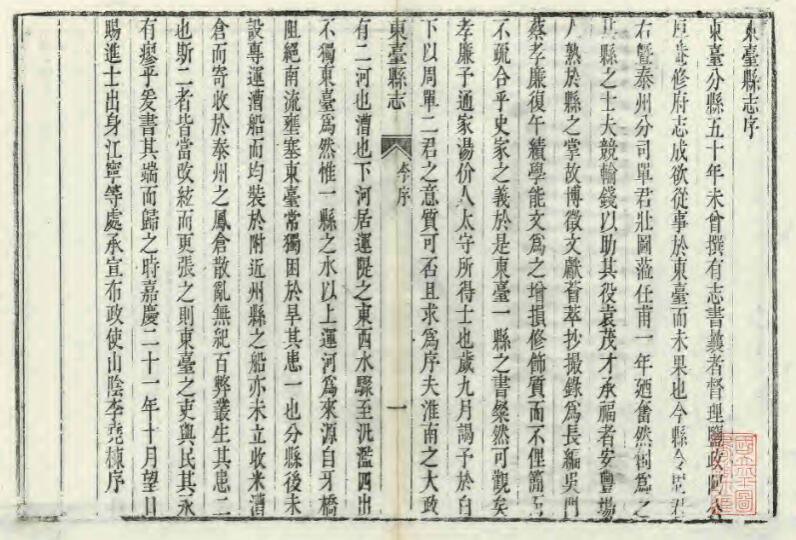 東臺縣志序
東臺分縣五十年未曾撰有志書曩者督理鹽政阿公
修府志成欲從事於東臺而未果也今縣令周君
右暨泰州分司單君壯圖蒞任甫一年廼奮然創爲之
縣之士夫競輸錢以助其役袁茂才承福者安豐場
人熟於縣之掌故博徵文獻薈萃抄撮錄爲長編吳門
蔡孝廉復午績學能文爲之增損修飾質而不俚簡而
不疏合乎史家之義於是東臺一縣之書粲然可觀矣
孝廉予通家湯价人太守所得士也歲九月謁予於白
下以周單二君之意質可否且求爲序夫淮南之大政
東臺縣志 序 一
有二河也漕也下河居運隄之東西水驟至汎濫四出
不獨東臺爲然惟一縣之水以上運河爲來源白牙橋
阻絕南流壅塞東臺常獨困於旱其患一也分縣後未
設專運漕船而均裝於附近州縣之船亦未立收米漕
倉而寄收於泰州之鳳倉散亂無紀百弊叢生其患二
也斯二者皆當改絃而更張之則東臺之吏與民其永
有瘳乎爰書其端而歸之時嘉慶二十一年十月望日
賜進士出身江寧等處承宣布政使山陰李堯棟序